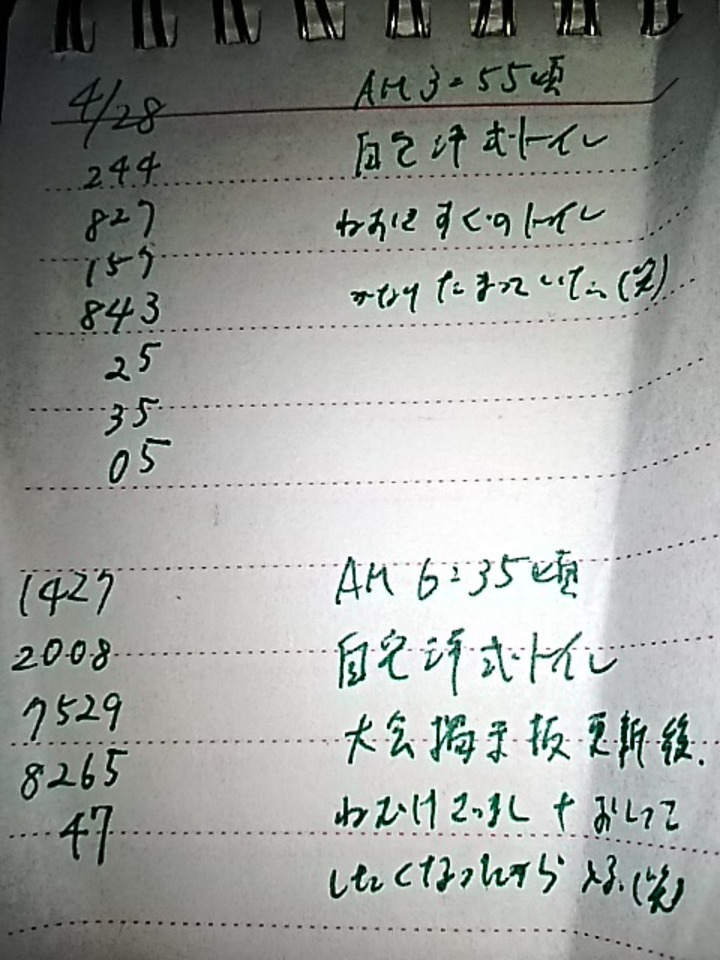 4/28 AM 3:55頃
244 自宅洋式トイレ
827 ねおきすぐのトイレ
157
843 かなりたまっていた(笑)
25
35
05
1427 AM 6:35頃
2008 自宅洋式トイレ
7529 大会掲示板更新後、
8265 ねむけざまし+おしっこ
47 したくなったから (笑)